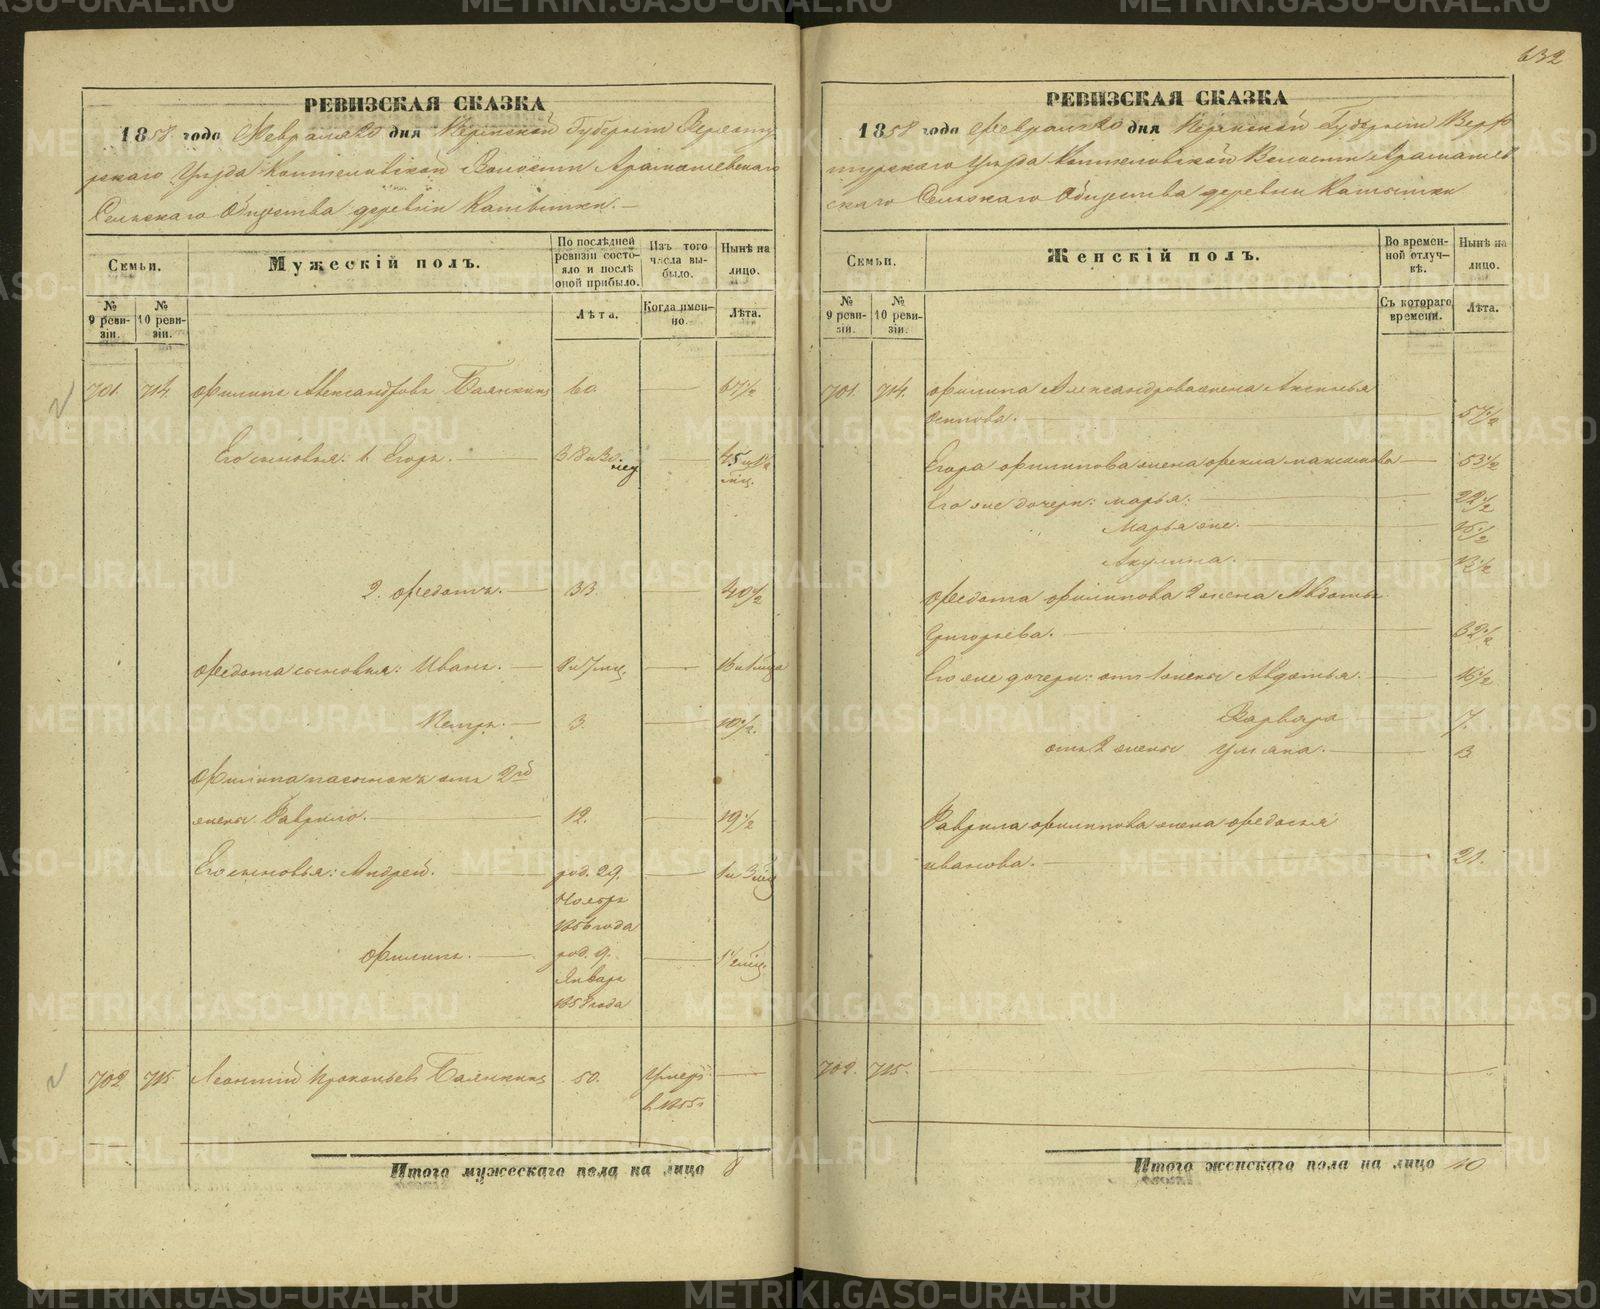 632
РЕВИЗСКАЯ СКАЗКА
1858 года Февраля 20 дня Пермской Губернии Верхоту
рскаго Уезда Коптеловской Волости Арамашевскаго
Сельскаго Общества деревни Катышки.
Семьи.
Мужескій полъ.
По послѣдней ревизіи состояло и послѣ оной прибыло.
Изъ того числа выбыло.
Нынѣ на лицо.
№ 9 ревизіи.
№ 10 ревизіи.
Лѣта.
Когда именно.
Лѣта.
701. 714. Филипъ Александровъ Балякинъ 60. 67 1/2
Его сыновья: 1. Егоръ.
2. Федотъ. 33 40 1/2
Федота сыновья: Иванъ. 8 и 7 мц.
Петръ. 3. 10 1/2
Филипа пасынокъ отъ 2й
жены Гаврило. 12. 19 1/2
Его сыновья: Андрей. род. 29. 1 и 3 мц
Ноябрь
1856 года
Филипъ. род. 9.
Январь
1858 года
702 715. Леонтій Прокопьевъ Балякинъ 50. Умеръ
в 1855 г
Итого мужескаго пола на лицо 8
РЕВИЗСКАЯ СКАЗКА
1858 года Февраля 20 дня Пермской Губерніи Верхо
турскаго Уезда Коптеловской Волости Арамашев
скаго Сельскаго Общества деревни Катышки
Семьи.
Женскій полъ.
Во временной отлучкѣ.
Нынѣ на лицо.
№ 9 ревизіи.
№ 10 ревизіи.
Съ котораго времени.
Лѣта.
701. 714. Филипа Александрова жена Аксинья
Осипова. 57 1/2
Егора Филипова жена Фекла Максимова 53 1/2
Его же дочери: Марья. 22 1/2
Марья же. 16 1/2
Акулина. 13 1/2
Федота Филипова 2 жена Авдотья
Григорьева. 32 1/2
Его же дочери: от 1 жены Авдотья. 16 1/2
Варвара 7.
отъ 2 жены Ульяна. 3
Гаврила Филипова жена Федосья
Иванова. 21.
702. 715.
Итого женскаго пола на лицо 10
METRIKI.GASO-URAL.RU